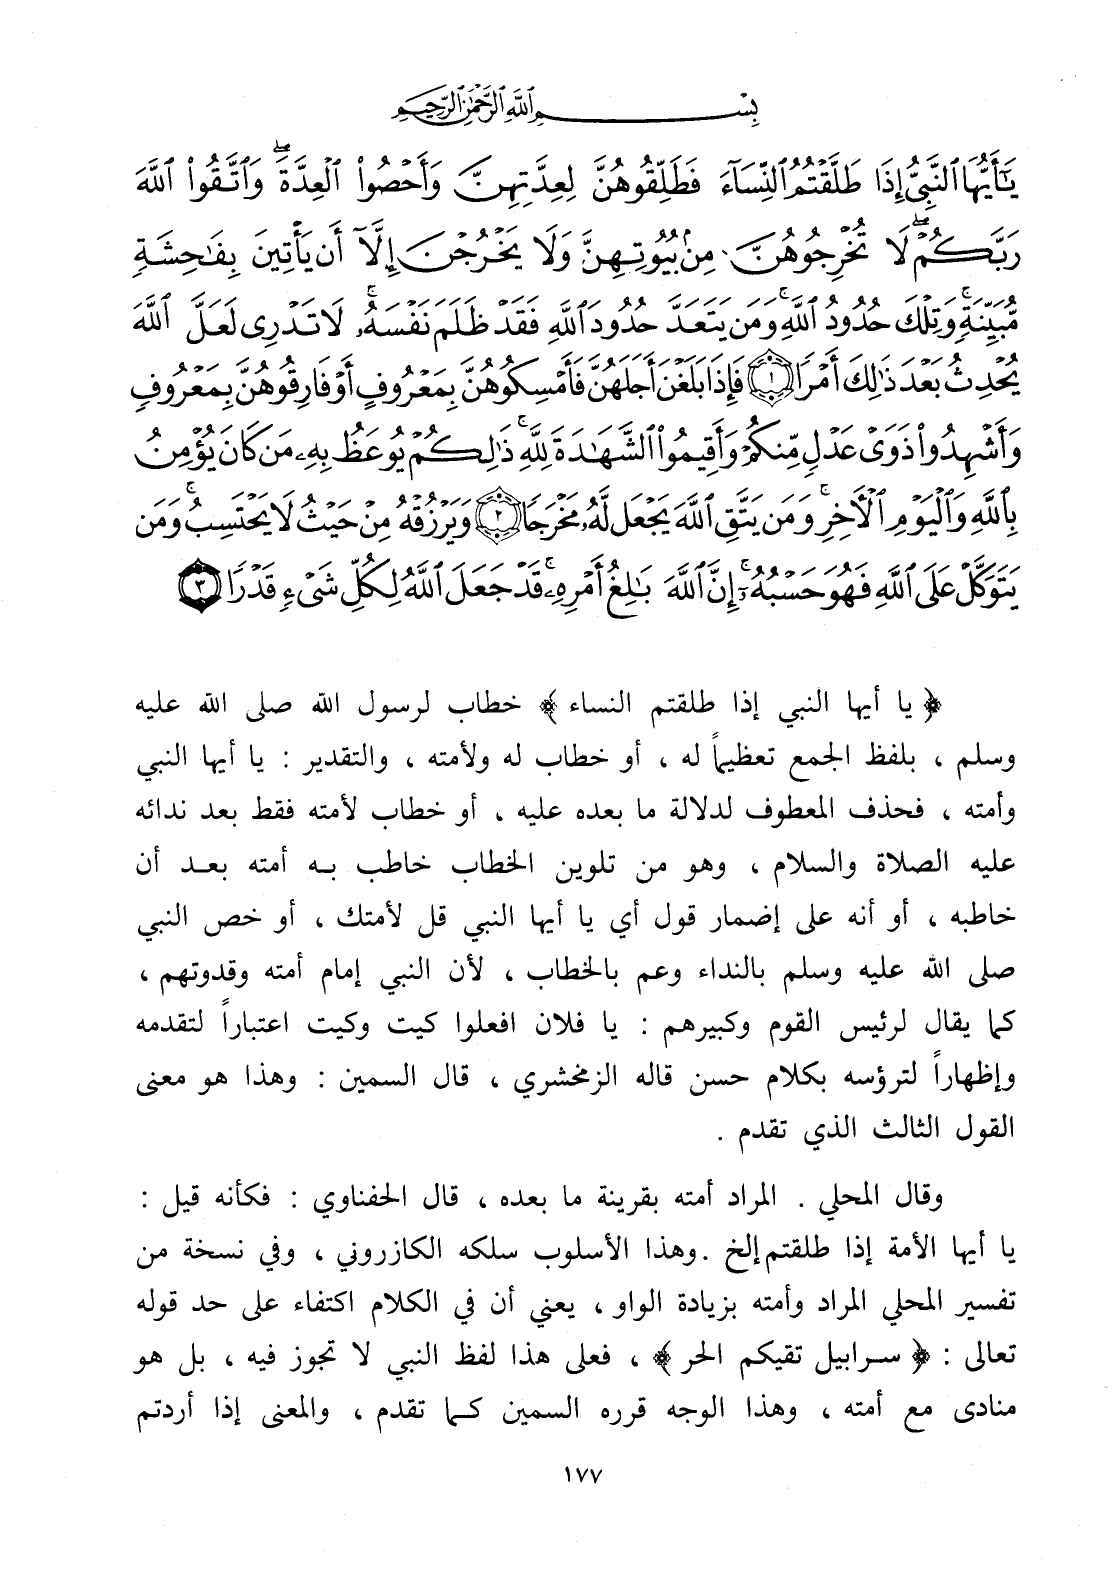 بِسْمِ اللَّهِ الرَّحْمَٰنِ الرَّحِيمِ
يَٰٓأَيُّهَا ٱلنَّبِىُّ إِذَا طَلَّقْتُمُ ٱلنِّسَآءَ فَطَلِّقُوهُنَّ لِعِدَّتِهِنَّ وَأَحْصُوا۟ ٱلْعِدَّةَ ۖ وَٱتَّقُوا۟ ٱللَّهَ
رَبَّكُمْ ۖ لَا تُخْرِجُوهُنَّ مِنۢ بُيُوتِهِنَّ وَلَا يَخْرُجْنَ إِلَّآ أَن يَأْتِينَ بِفَٰحِشَةٍ
مُّبَيِّنَةٍ ۚ وَتِلْكَ حُدُودُ ٱللَّهِ ۚ وَمَن يَتَعَدَّ حُدُودَ ٱللَّهِ فَقَدْ ظَلَمَ نَفْسَهُۥ ۚ لَا تَدْرِى لَعَلَّ ٱللَّهَ
يُحْدِثُ بَعْدَ ذَٰلِكَ أَمْرًا ١ فَإِذَا بَلَغْنَ أَجَلَهُنَّ فَأَمْسِكُوهُنَّ بِمَعْرُوفٍ أَوْ فَارِقُوهُنَّ بِمَعْرُوفٍ
وَأَشْهِدُوا۟ ذَوَىْ عَدْلٍ مِّنكُمْ وَأَقِيمُوا۟ ٱلشَّهَٰدَةَ لِلَّهِ ۚ ذَٰلِكُمْ يُوعَظُ بِهِۦ مَن كَانَ يُؤْمِنُ
بِٱللَّهِ وَٱلْيَوْمِ ٱلْأَخِرِ ۚ وَمَن يَتَّقِ ٱللَّهَ يَجْعَل لَّهُۥ مَخْرَجًا ٢ وَيَرْزُقْهُ مِنْ حَيْثُ لَا يَحْتَسِبُ ۚ وَمَن
يَتَوَكَّلْ عَلَى ٱللَّهِ فَهُوَ حَسْبُهُۥٓ ۚ إِنَّ ٱللَّهَ بَٰلِغُ أَمْرِهِۦ ۚ قَدْ جَعَلَ ٱللَّهُ لِكُلِّ شَىْءٍ قَدْرًا ٣
﴿ يا أيها النبي إذا طلقتم النساء ﴾ خطاب لرسول الله صلى الله عليه
وسلم ، بلفظ الجمع تعظيماً له ، أو خطاب له ولأمته ، والتقدير : يا أيها النبي
وأمته ، فحذف المعطوف لدلالة ما بعده عليه ، أو خطاب لأمته فقط بعد ندائه
عليه الصلاة والسلام ، وهو من تلوين الخطاب خاطب به أمته بعد أن
خاطبه ، أو أنه على إضمار قول أي يا أيها النبي قل لأمتك ، أو خص النبي
صلى الله عليه وسلم بالنداء وعم بالخطاب ، لأن النبي إمام أمته وقدوتهم ،
كما يقال لرئيس القوم وكبيرهم : يا فلان افعلوا كيت وكيت اعتباراً لتقدمه
وإظهاراً لترؤسه بكلام حسن قاله الزمخشري ، قال السمين : وهذا هو معنى
القول الثالث الذي تقدم .
وقال المحلي . المراد أمته بقرينة ما بعده ، قال الحفناوي : فكأنه قيل :
يا أيها الأمة إذا طلقتم إلخ . وهذا الأسلوب سلكه الكازروني ، وفي نسخة من
تفسير المحلي المراد وأمته بزيادة الواو ، يعني أن في الكلام اكتفاء على حد قوله
تعالى : ﴿ سرابيل تقيكم الحر ﴾ ، فعلى هذا لفظ النبي لا تجوز فيه ، بل هو
منادى مع أمته ، وهذا الوجه قرره السمين كما تقدم ، والمعنى إذا أردتم
١٧٧